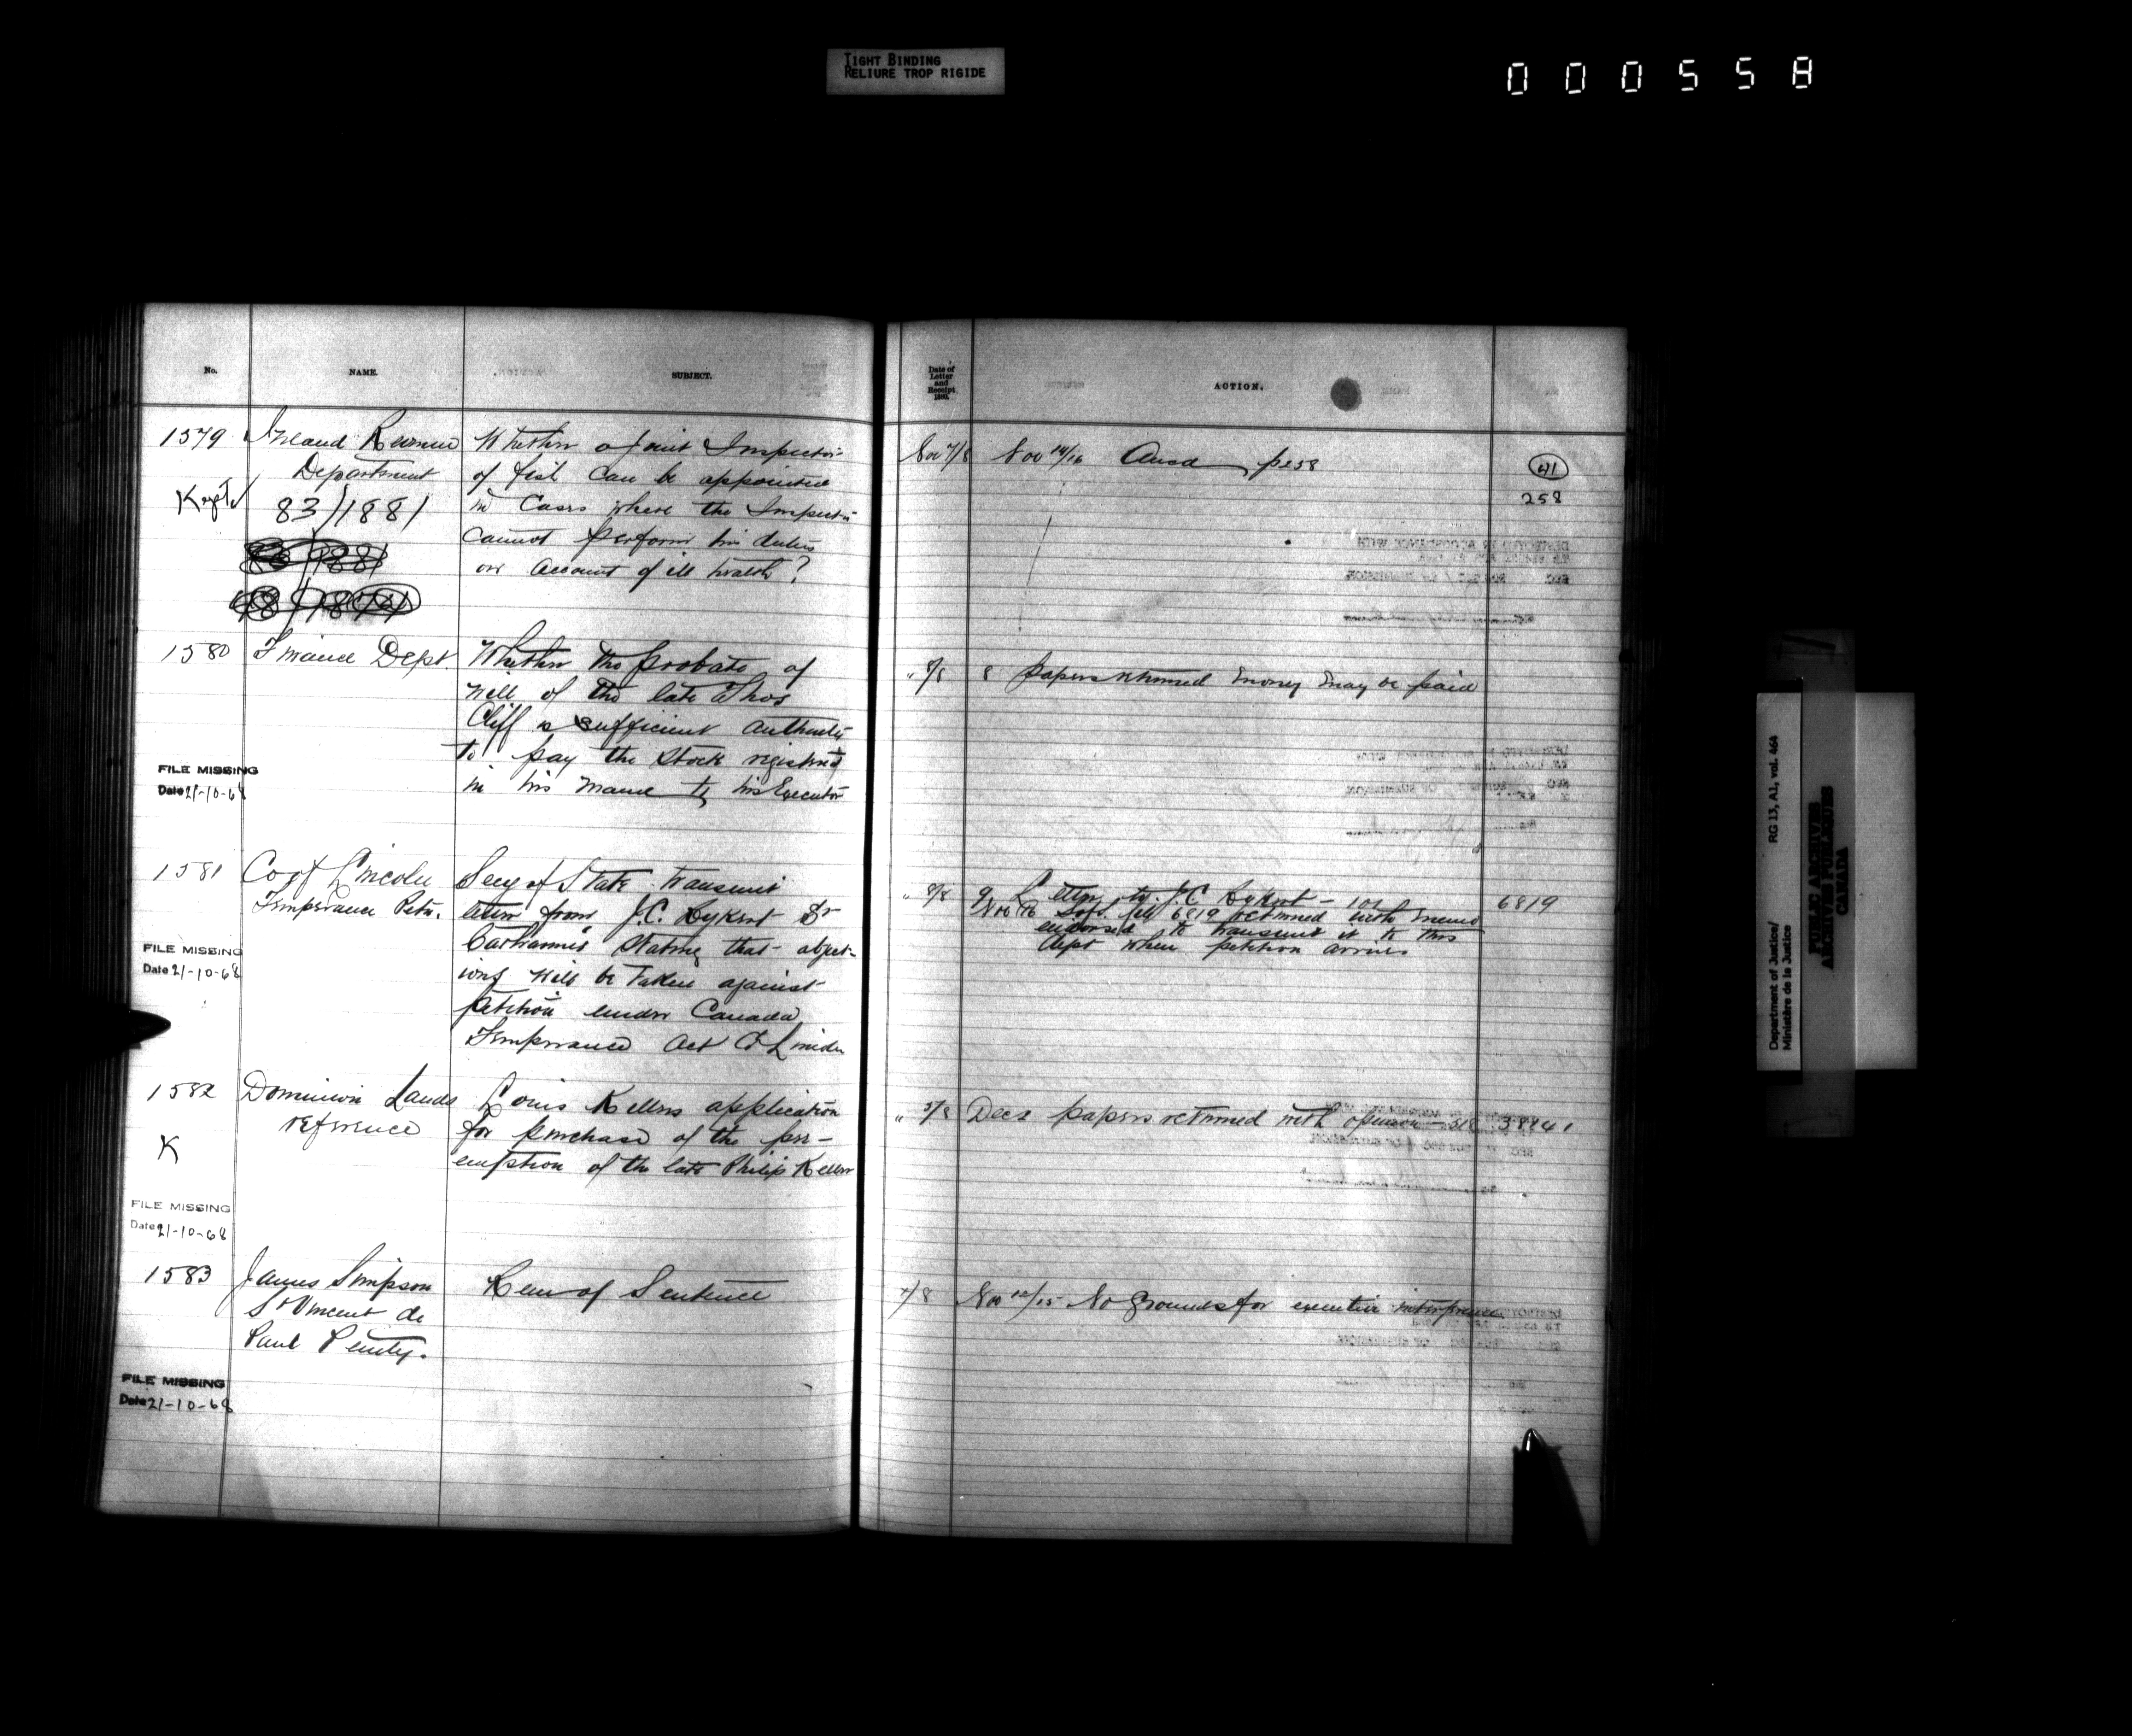 TIGHT BINDING
RELIURE TROP RIGIDE
000558
No.
NAME.
SUBJECT.
Date of
Letter
and
Receipt
ACTION.
1579
Inland Revenue
Department
Kept
83/1881
Whether a Joint Inspector
of fish can be appointed
in Cases where the Inspector
cannot perform his duties
on Account of ill health?
Nov 7/8
Nov 14/16 Ansd p258
41
258
1580
Finance Dept
Whether the probate of
will of the late Thos
Cliff is sufficient authority
to pay the stock registered
in his name to his Executor
" 8/8
8 papers returned money may be paid
FILE MISSING
Date 21-10-68
1581
Co of Lincoln
Temperance Petn.
Secy of State transmit
letter from J.C. Rykert St
Catharines stating that object-
ions will be taken against
petition under Canada
Temperance Act Co Lincoln
" 8/8
9 Letter to J.C Rykert - 101
Nov 16 file 6819 returned with memo
endorsed to transmit it to this
dept when petition arrives
6819
FILE MISSING
Date 21-10-68
1582
Dominion Lands
reference
K
Louis Kellers application
for purchase of the pre-
emption of the late Philip Keller
" 5/8
Dec 2 papers returned with opinion - 318
38841
FILE MISSING
Date 21-10-68
1583
James Simpson
St Vincent de
Paul Penity.
Rem of Sentence
7/8
Nov 12/15 No grounds for executive interference
FILE MISSING
Date 21-10-68
Department of Justice/
Ministère de la Justice
RG 13, A1, vol. 464
PUBLIC ARCHIVES
ARCHIVES PUBLIQUES
CANADA